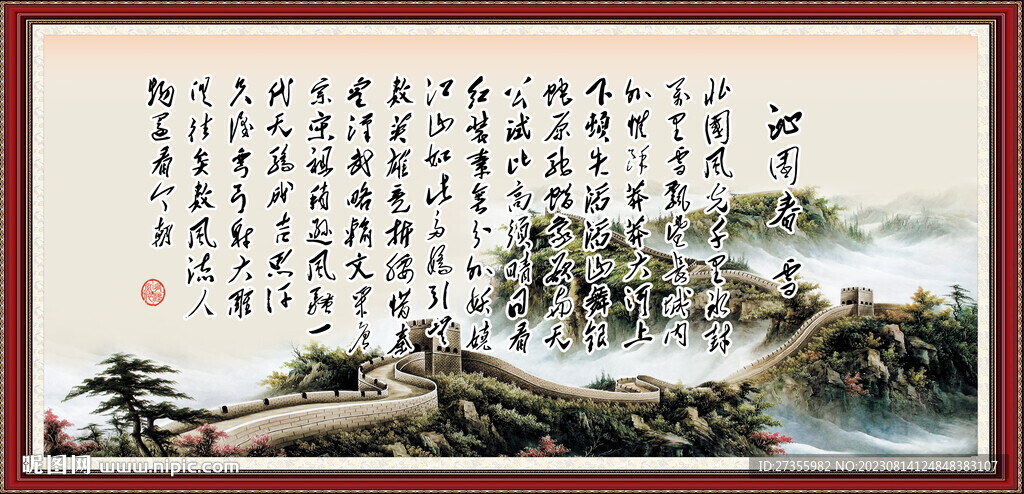 沁園春 雪
北國風光千里冰封
萬里雪飄望長城内
外惟餘莽莽大河上
下頓失滔滔山舞銀
蛇原馳蠟象欲與天
公試比高須晴日看
紅裝素裹分外妖嬈
江山如此多嬌引無
數英雄競折腰惜秦
皇漢武略輸文采唐
宗宋祖稍遜風騷一
代天驕成吉思汗
只識彎弓射大雕
俱往矣數風流人
物還看今朝
昵图网 www.nipic.com
ID:27355982 NO:20230814124848383107